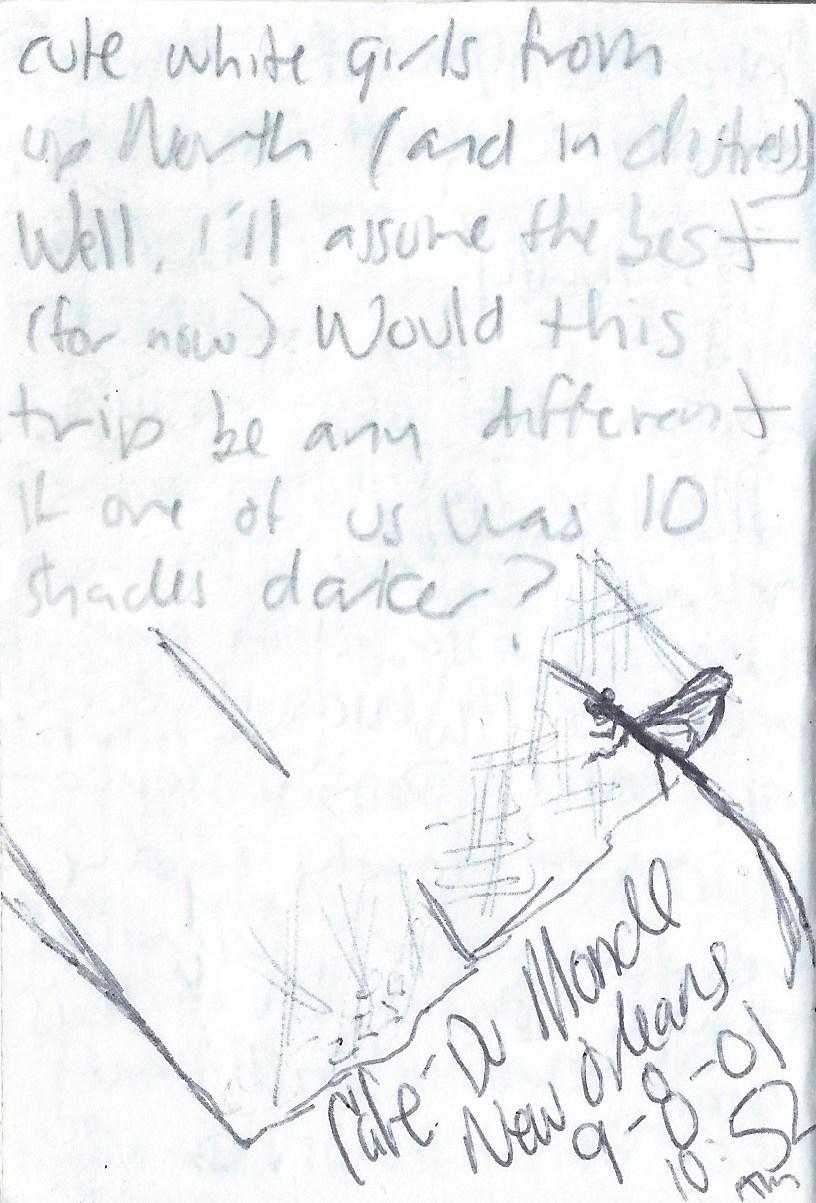 cute white girls from
up North (and in distress)
Well, I'll assume the best
(for now) Would this
trip be any different
if one of us was 10
shades darker?
Cafe Du Monde
New Orleans
9-8-01
10:52